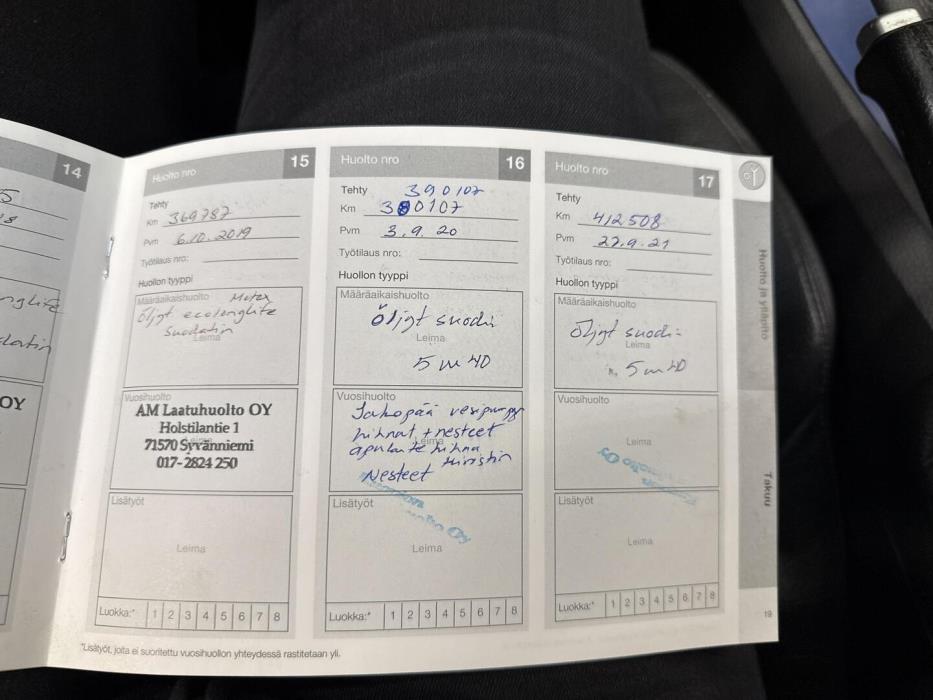 14
5
18
nglife
latin
OY
Huolto nro 15
Tehty
Km 369787
Pvm 6.10.2019
Työtilaus nro:
Huollon tyyppi
Määräaikaishuolto
Motex
Öljyt ecolonglife
Suodatin
Leima
Vuosihuolto
AM Laatuhuolto OY
Holstilantie 1
71570 Syvänniemi
017-2824 250
Leima
Lisätyöt
Leima
Luokka:* 1 2 3 4 5 6 7 8
Huolto nro 16
Tehty 390107
Km 390107
Pvm 3.9.20
Työtilaus nro:
Huollon tyyppi
Määräaikaishuolto
Öljyt suodi
Leima
5 W 40
Vuosihuolto
Jakopää vesipumppu
hihnat + nesteet
Leima
apulaite hihna
kiristin
Nesteet
Oy
Lisätyöt
Leima
Luokka:* 1 2 3 4 5 6 7 8
Huolto nro 17
Tehty
Km 412508
Pvm 27.9.21
Työtilaus nro:
Huollon tyyppi
Määräaikaishuolto
Öljyt suodi
Leima
5 W 40
Vuosihuolto
Leima
Oy
Lisätyöt
Leima
Luokka:* 1 2 3 4 5 6 7 8
Huolto ja ylläpito
Takuu
19
*Lisätyöt, joita ei suoritettu vuosihuollon yhteydessä rastitetaan yli.